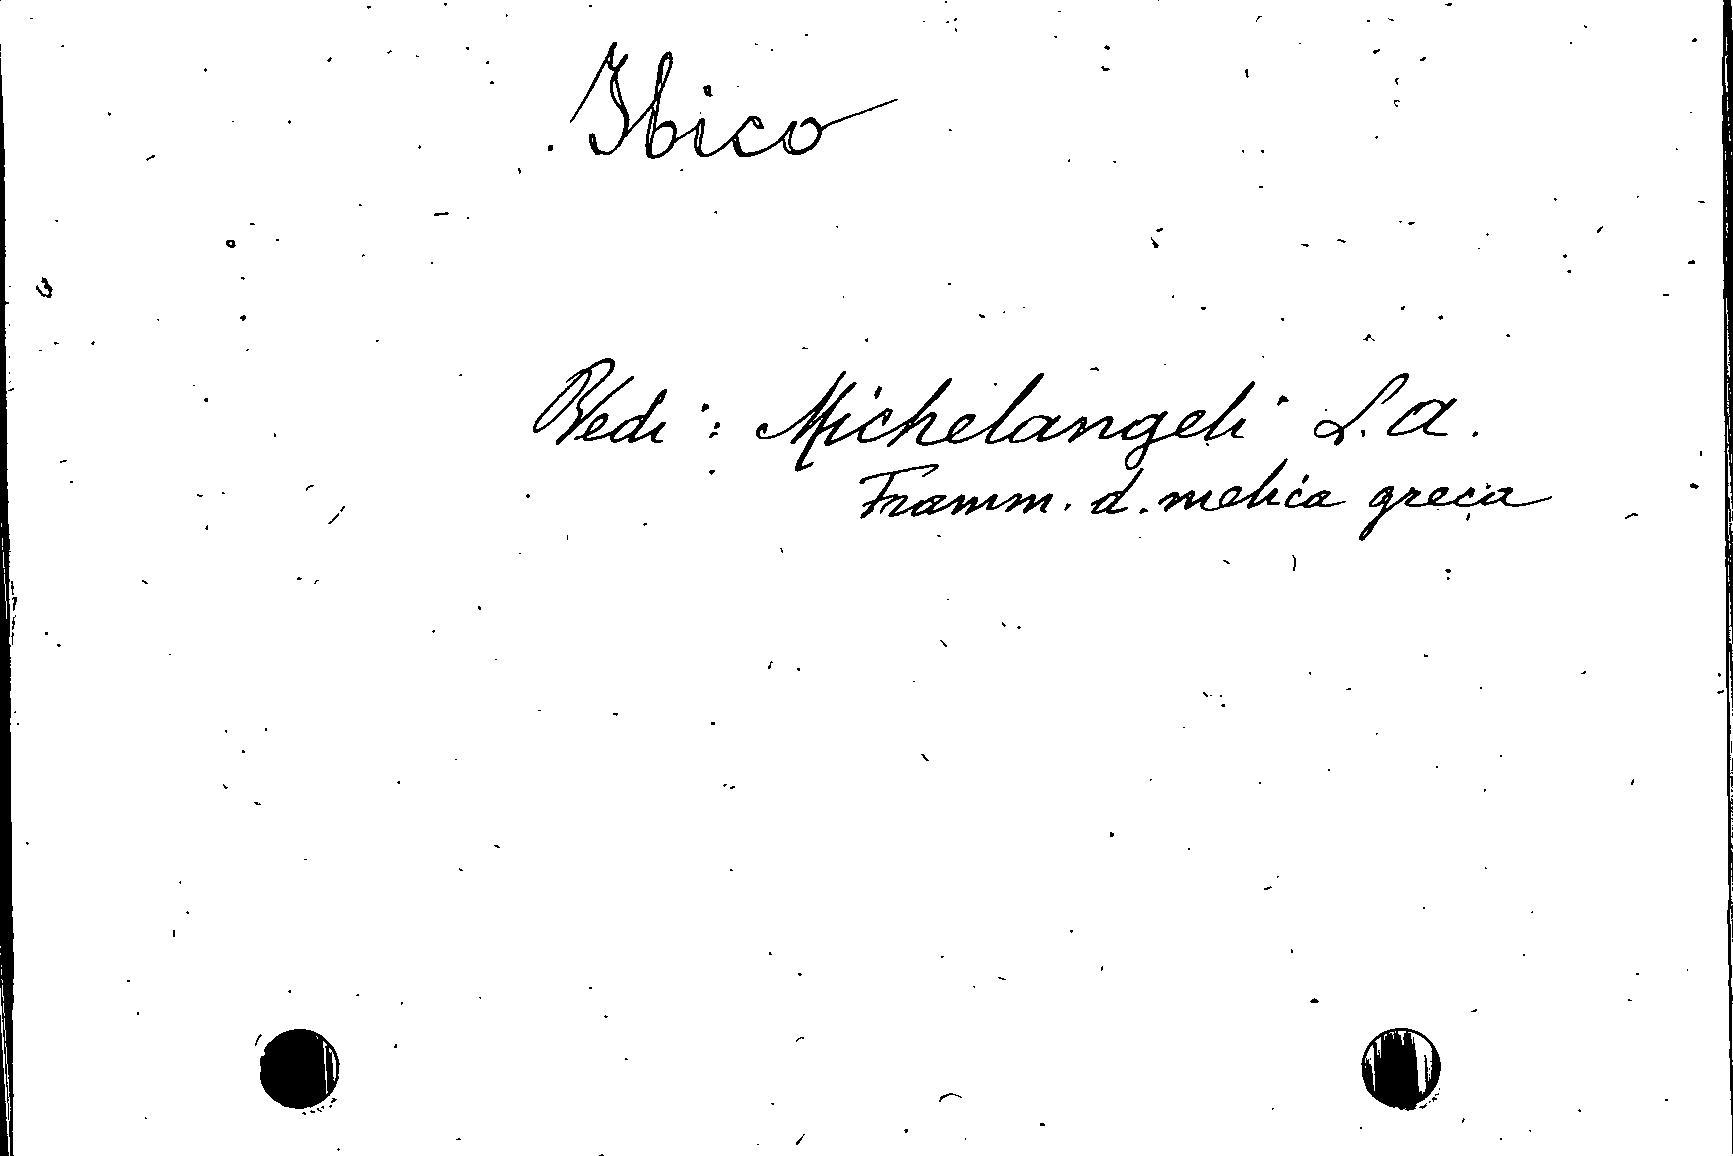 Ibico
Vedi: Michelangeli L. A.
Framm. d. melica greca